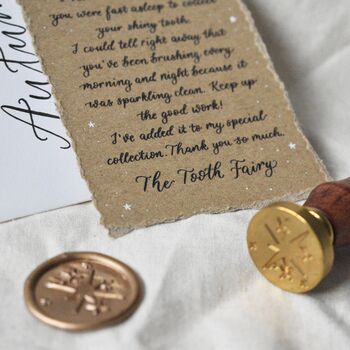 you were fast asleep to collect
your shiny tooth.
I could tell right away that
you've been brushing every
morning and night because it
was sparkling clean. Keep up
the good work!
I've added it to my special
collection. Thank you so much.
The Tooth Fairy
Autum